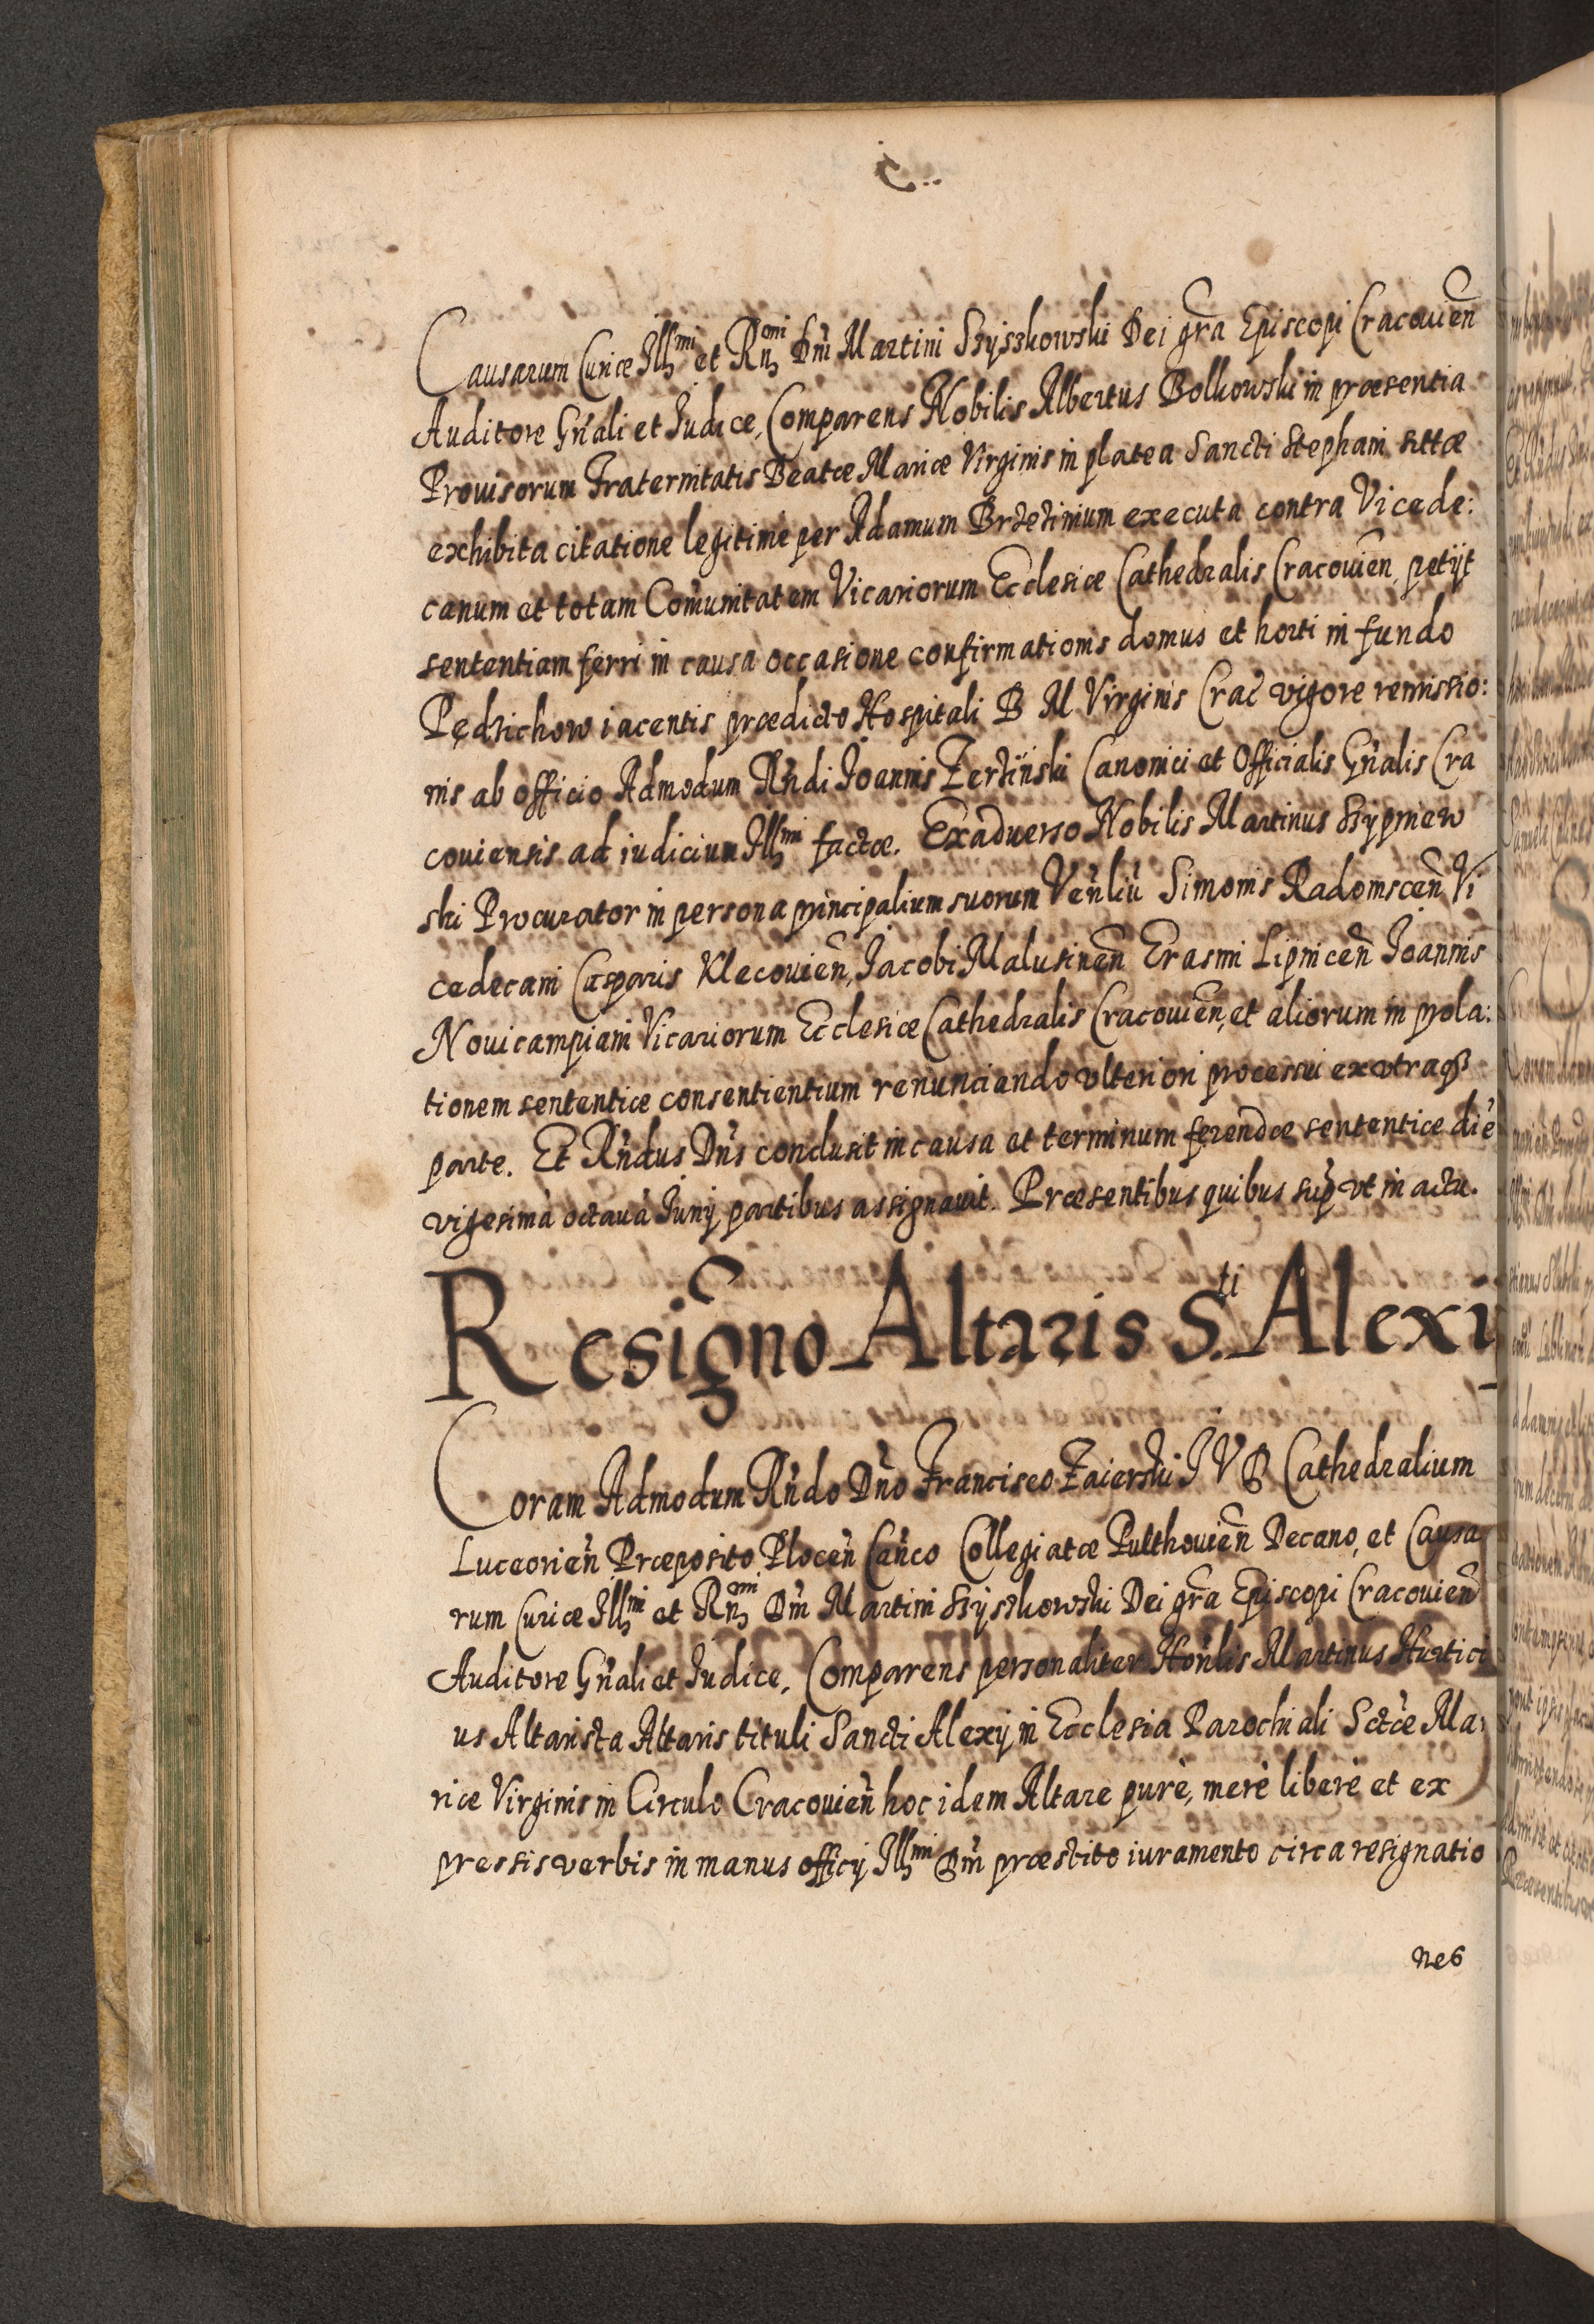 Causarum Curiæ Illmi et Rndmi Dni Martini Szyszkowski Dei gra Episcopi Cracouien
Auditore Gnali et Iudice, Comparens Nobilis Albertus Bolkowski in præsentia
Prouisorum Fraternitatis Beatæ Mariæ Virginis in platea Sancti Stephani sittæ
exhibita citatione legitime per Adamum Brzezinium executa contra Vicede:
canum et totam Comunitatem Vicariorum Ecclesiæ Cathedralis Cracouien, petijt
sententiam ferri in causa occasione confirmationis domus et horti in fundo
Pędzichow iacentis prædicto Hospitali B M Virginis Crac vigore remissio:
nis ab officio Admodum Rndi Ioannis Zerzinski Canonici et Officialis Gnalis Cra
couiensis ad iudicium Illmi factæ. Exaduerso Nobilis Martinus Szypniew
ski Procurator in persona principalium suorum Venliu Simonis Radomscen Vi
cedecani Casparis Klecouien, Iacobi Malusinen Erasmi Lipnicen Ioannis
Nouicampiani Vicariorum Ecclesiæ Cathedralis Cracouien, et aliorum in prola:
tionem sententiæ consentientium renunciando vlteriori processui ex vtraqz
parte. Et Rndus Dns conclusit in causa et terminum ferendæ sententiæ die
vigesima octaua Iunij partibus assignauit. Præsentibus quibus sup vt in actu.
Resigno Altaris S.ti Alexij
Coram Admodum Rndo Dno Francisco Zaierski I V D Cathedralium
Luceorien Præposito Plocen Canco Collegiatæ Pulthouien Decano, et Causa
rum Curiæ Illmi et Rndmi Dni Martini Szyszkowski Dei gra Episcopi Cracouien
Auditore Gnali et Iudice, Comparens personaliter Honlis Martinus Hurtici
us Altarista Altaris tituli Sancti Alexij in Ecclesia Parochiali Sctæ Ma:
riæ Virginis in Circulo Cracouien hoc idem Altare pure, mere libere et ex
pressis verbis in manus officij Illmi Dni præstito iuramento circa resignatio